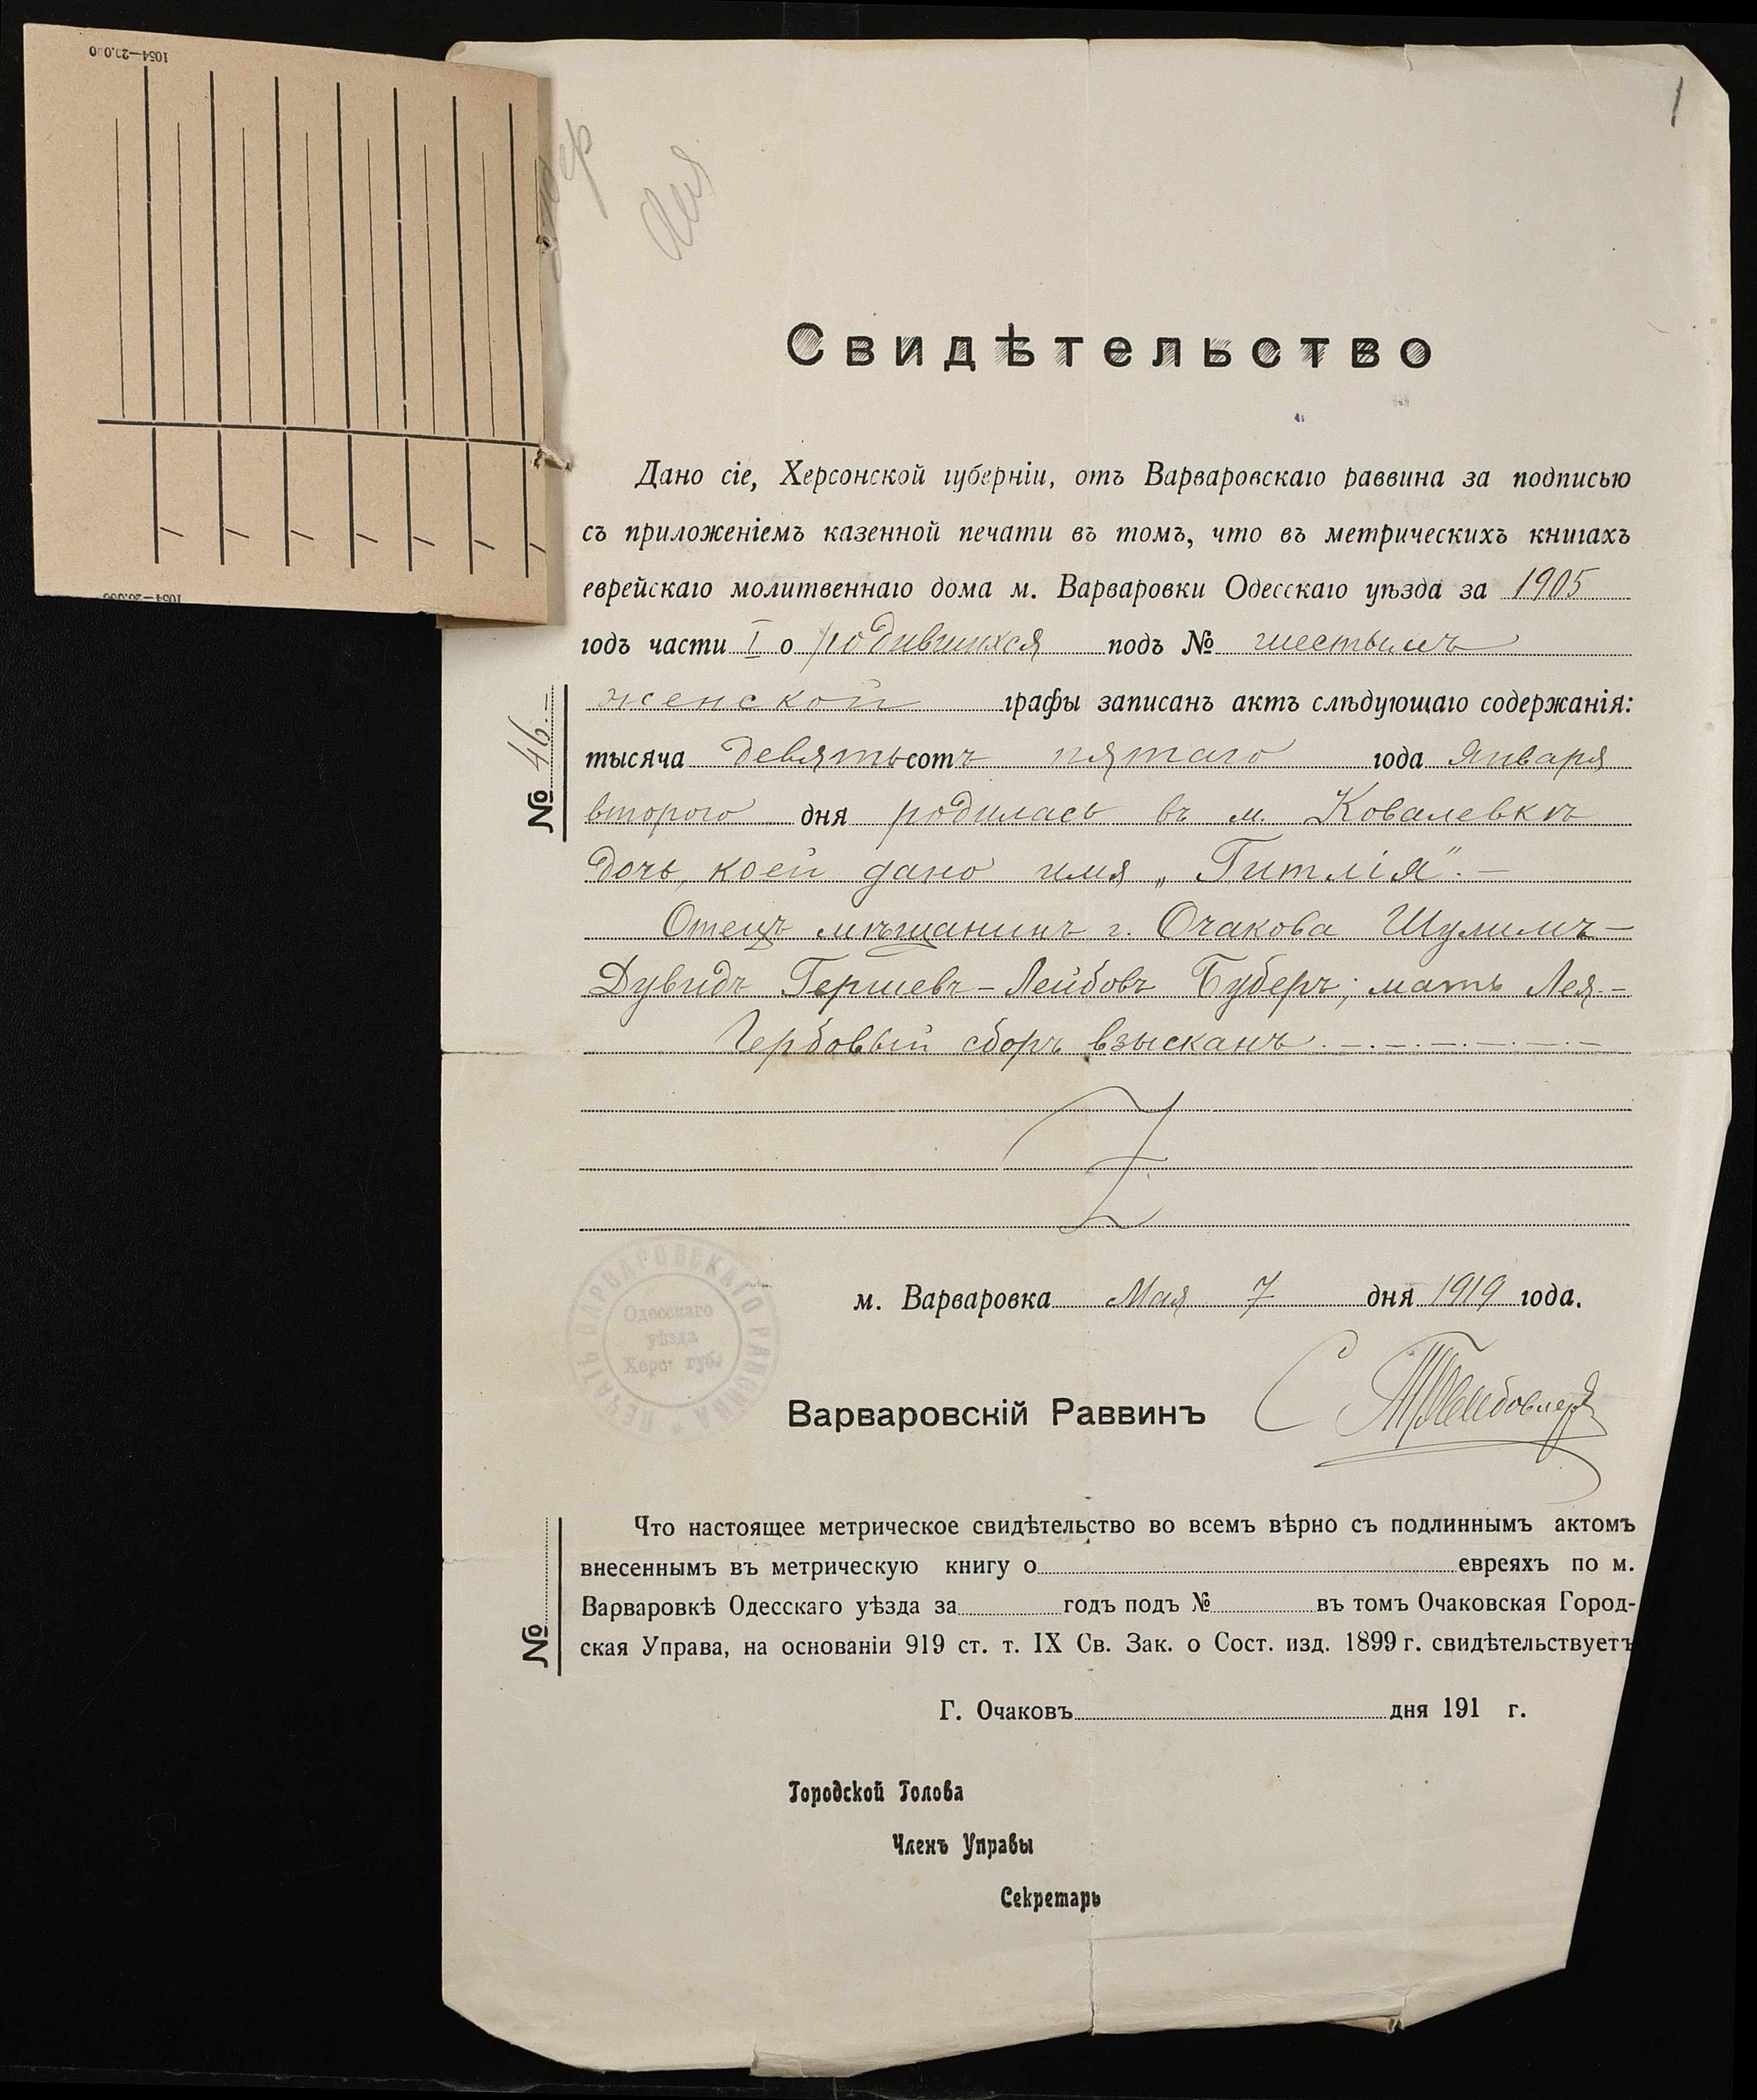 1054—20.000
1054—20.000
1
Лея
Свидѣтельство
Дано сіе, Херсонской губерніи, отъ Варваровскаго раввина за подписью
съ приложеніемъ казенной печати въ томъ, что въ метрическихъ книгахъ
еврейскаго молитвеннаго дома м. Варваровки Одесскаго уѣзда за 1905
годъ части I о родившихся подъ № шестымъ
женской графы записанъ актъ слѣдующаго содержанія:
№ 46.—
тысяча девятьсотъ пятаго года Января
второго дня родилась въ м. Ковалевкѣ
дочь, коей дано имя „Гитлія“.—
Отецъ мѣщанинъ г. Очакова Шулимъ-
Дувидъ Гершевъ-Лейбовъ Буберъ; мать Лея.—
Гербовый сборъ взысканъ.—.—.—.—.—.—
м. Варваровка Мая 7 дня 1919 года.
ПЕЧАТЬ ВАРВАРОВСКАГО РАВВИНА
Одесскаго
уѣзда
Херс. губ.
Варваровскій Раввинъ
Что настоящее метрическое свидѣтельство во всемъ вѣрно съ подлиннымъ актомъ
внесеннымъ въ метрическую книгу о евреяхъ по м.
Варваровкѣ Одесскаго уѣзда за годъ подъ № въ томъ Очаковская Город-
ская Управа, на основаніи 919 ст. т. IX Св. Зак. о Сост. изд. 1899 г. свидѣтельствуетъ
№
Г. Очаковъ дня 191 г.
Городской Голова
Членъ Управы
Секретарь